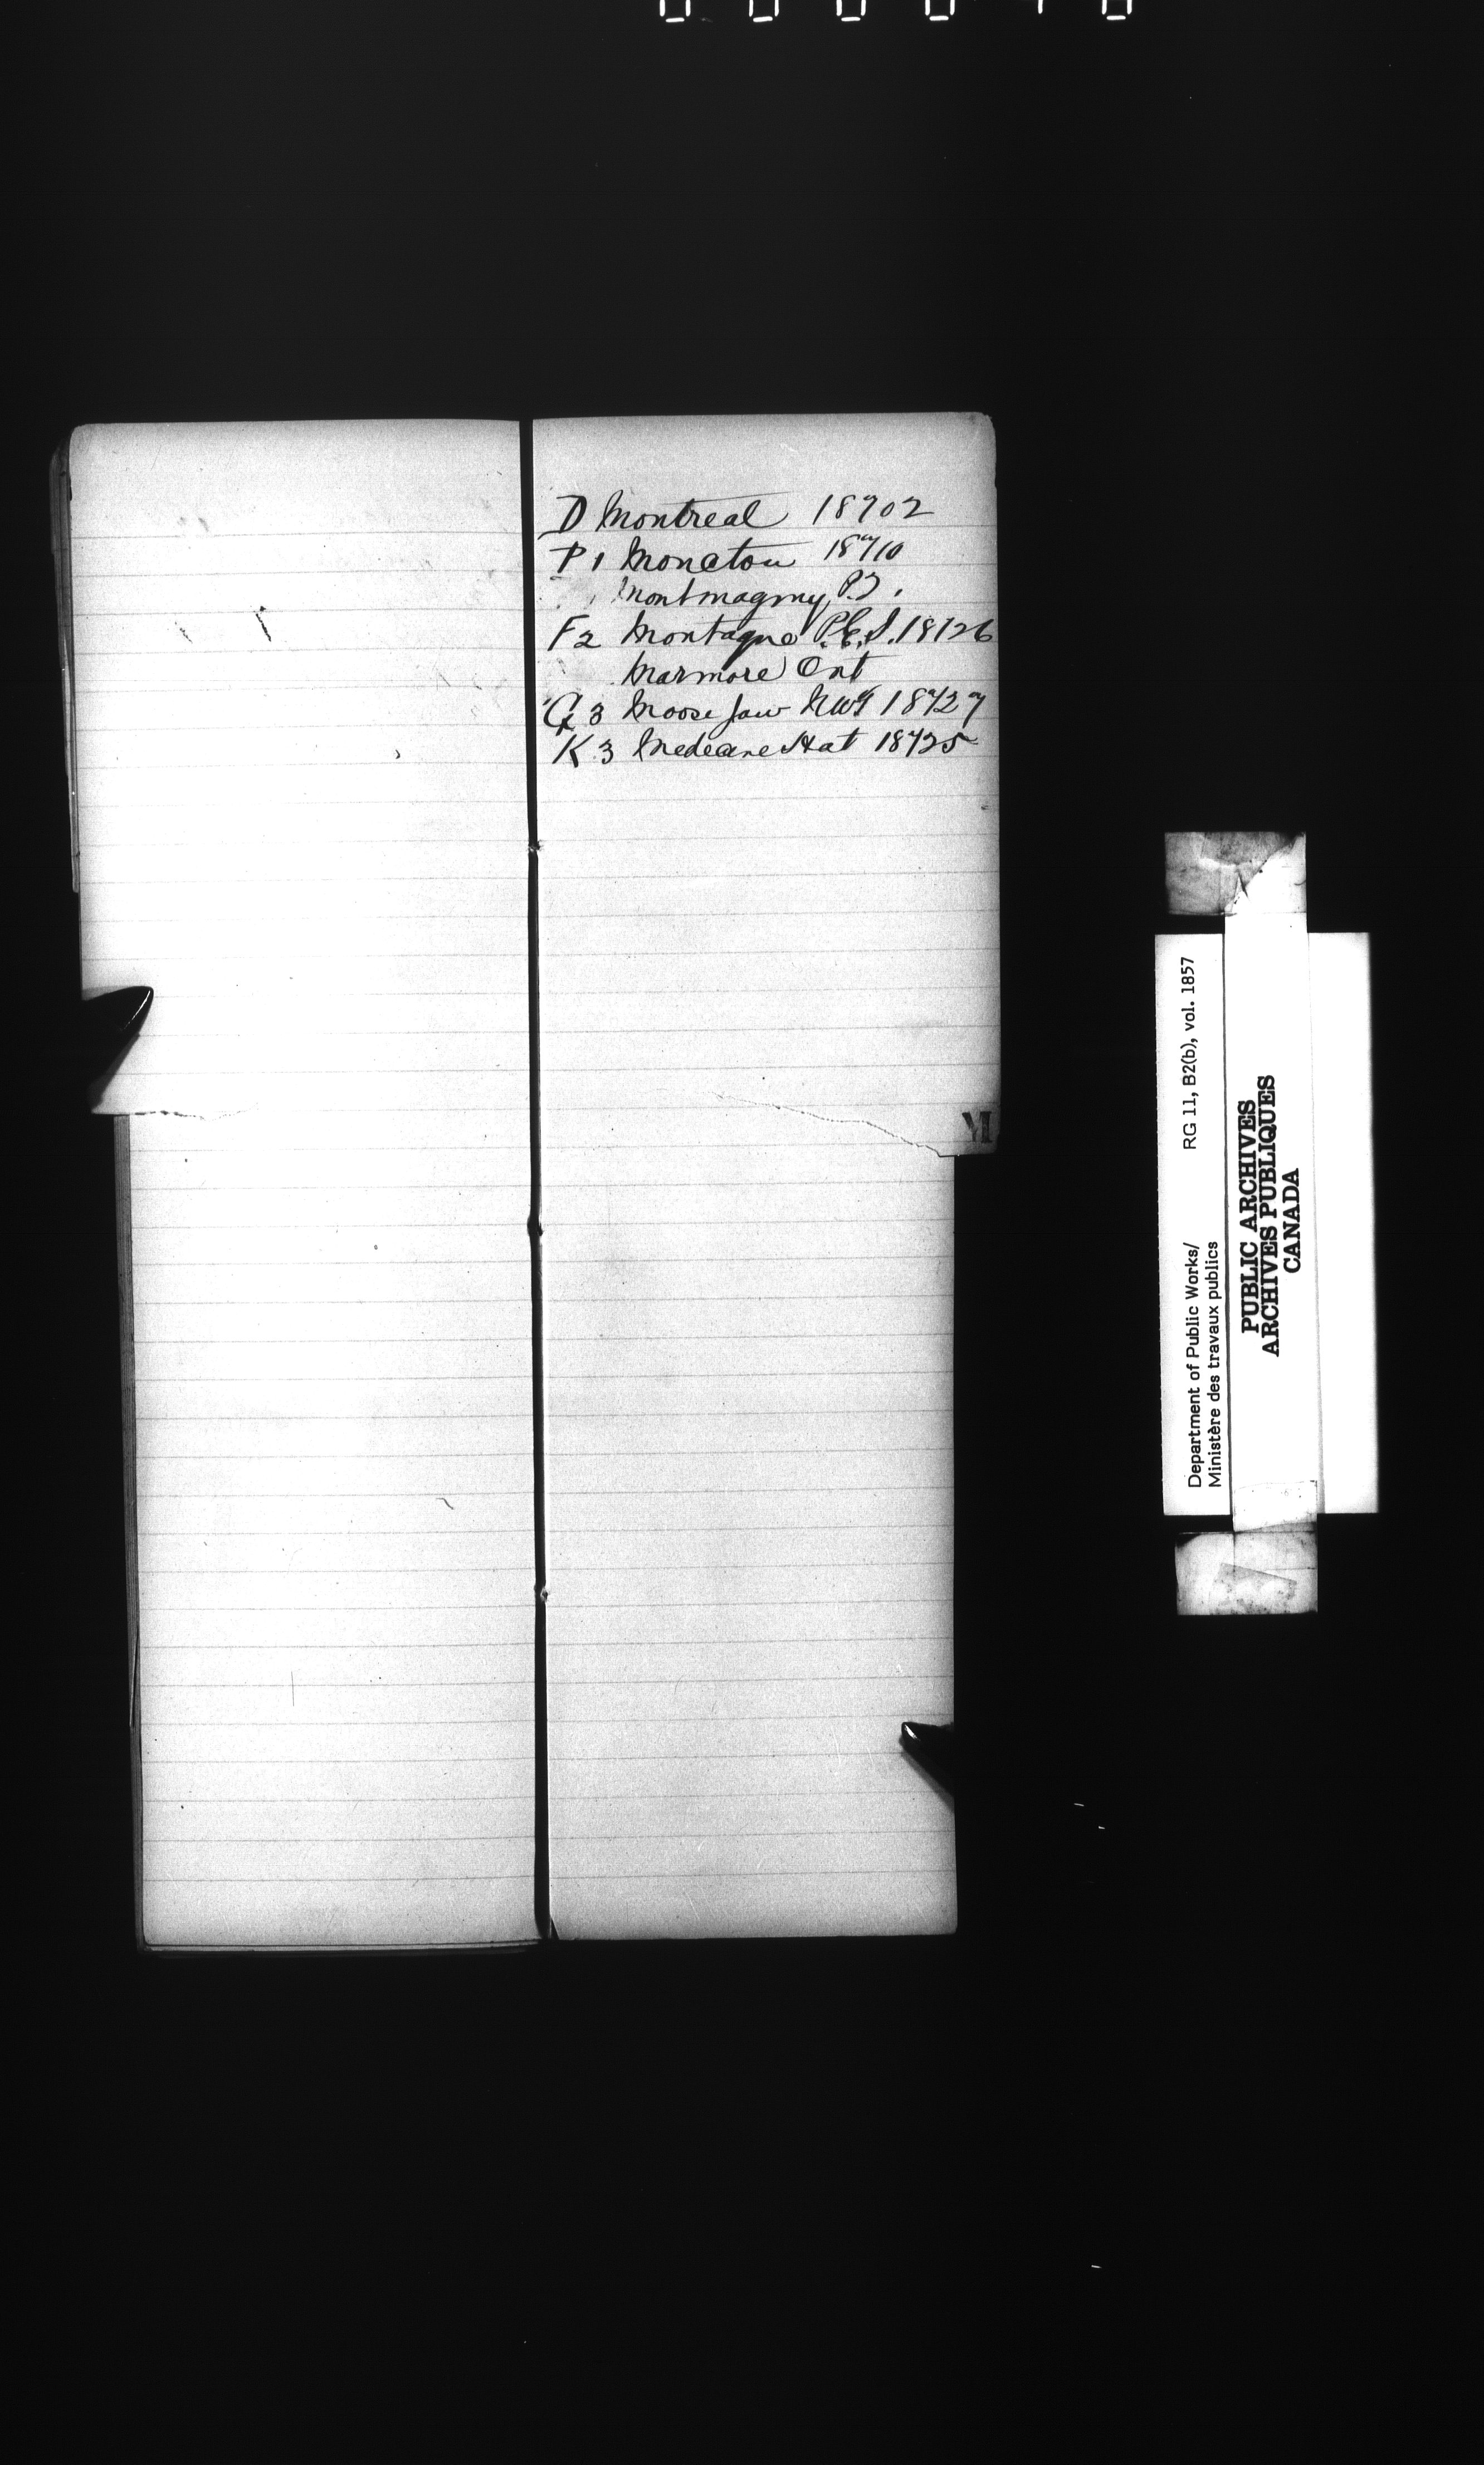 D Montreal 18702
P 1 Moncton 18710
Montmagny P.2.
F2 Montague P.E.I. 18726
Marmore Ont
G 3 Moose Jaw NWT 18727
K 3 Medecine Hat 18725
M
RG 11, B2(b), vol. 1857
Department of Public Works/
Ministère des travaux publics
PUBLIC ARCHIVES
ARCHIVES PUBLIQUES
CANADA